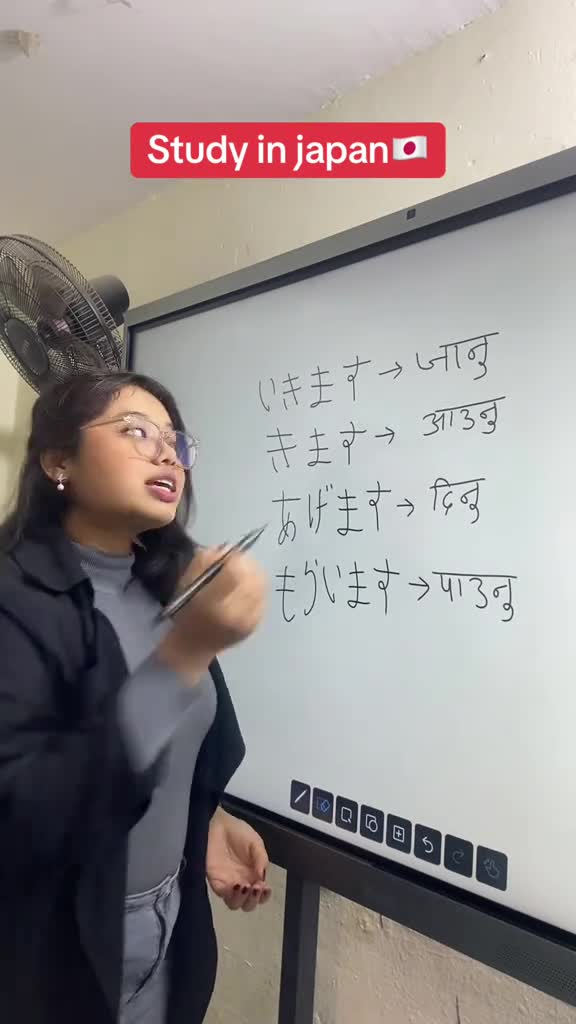 Study in japan🇯🇵
いきます → जानु
きます → आउनु
あげます → दिनु
もらいます → पाउनु